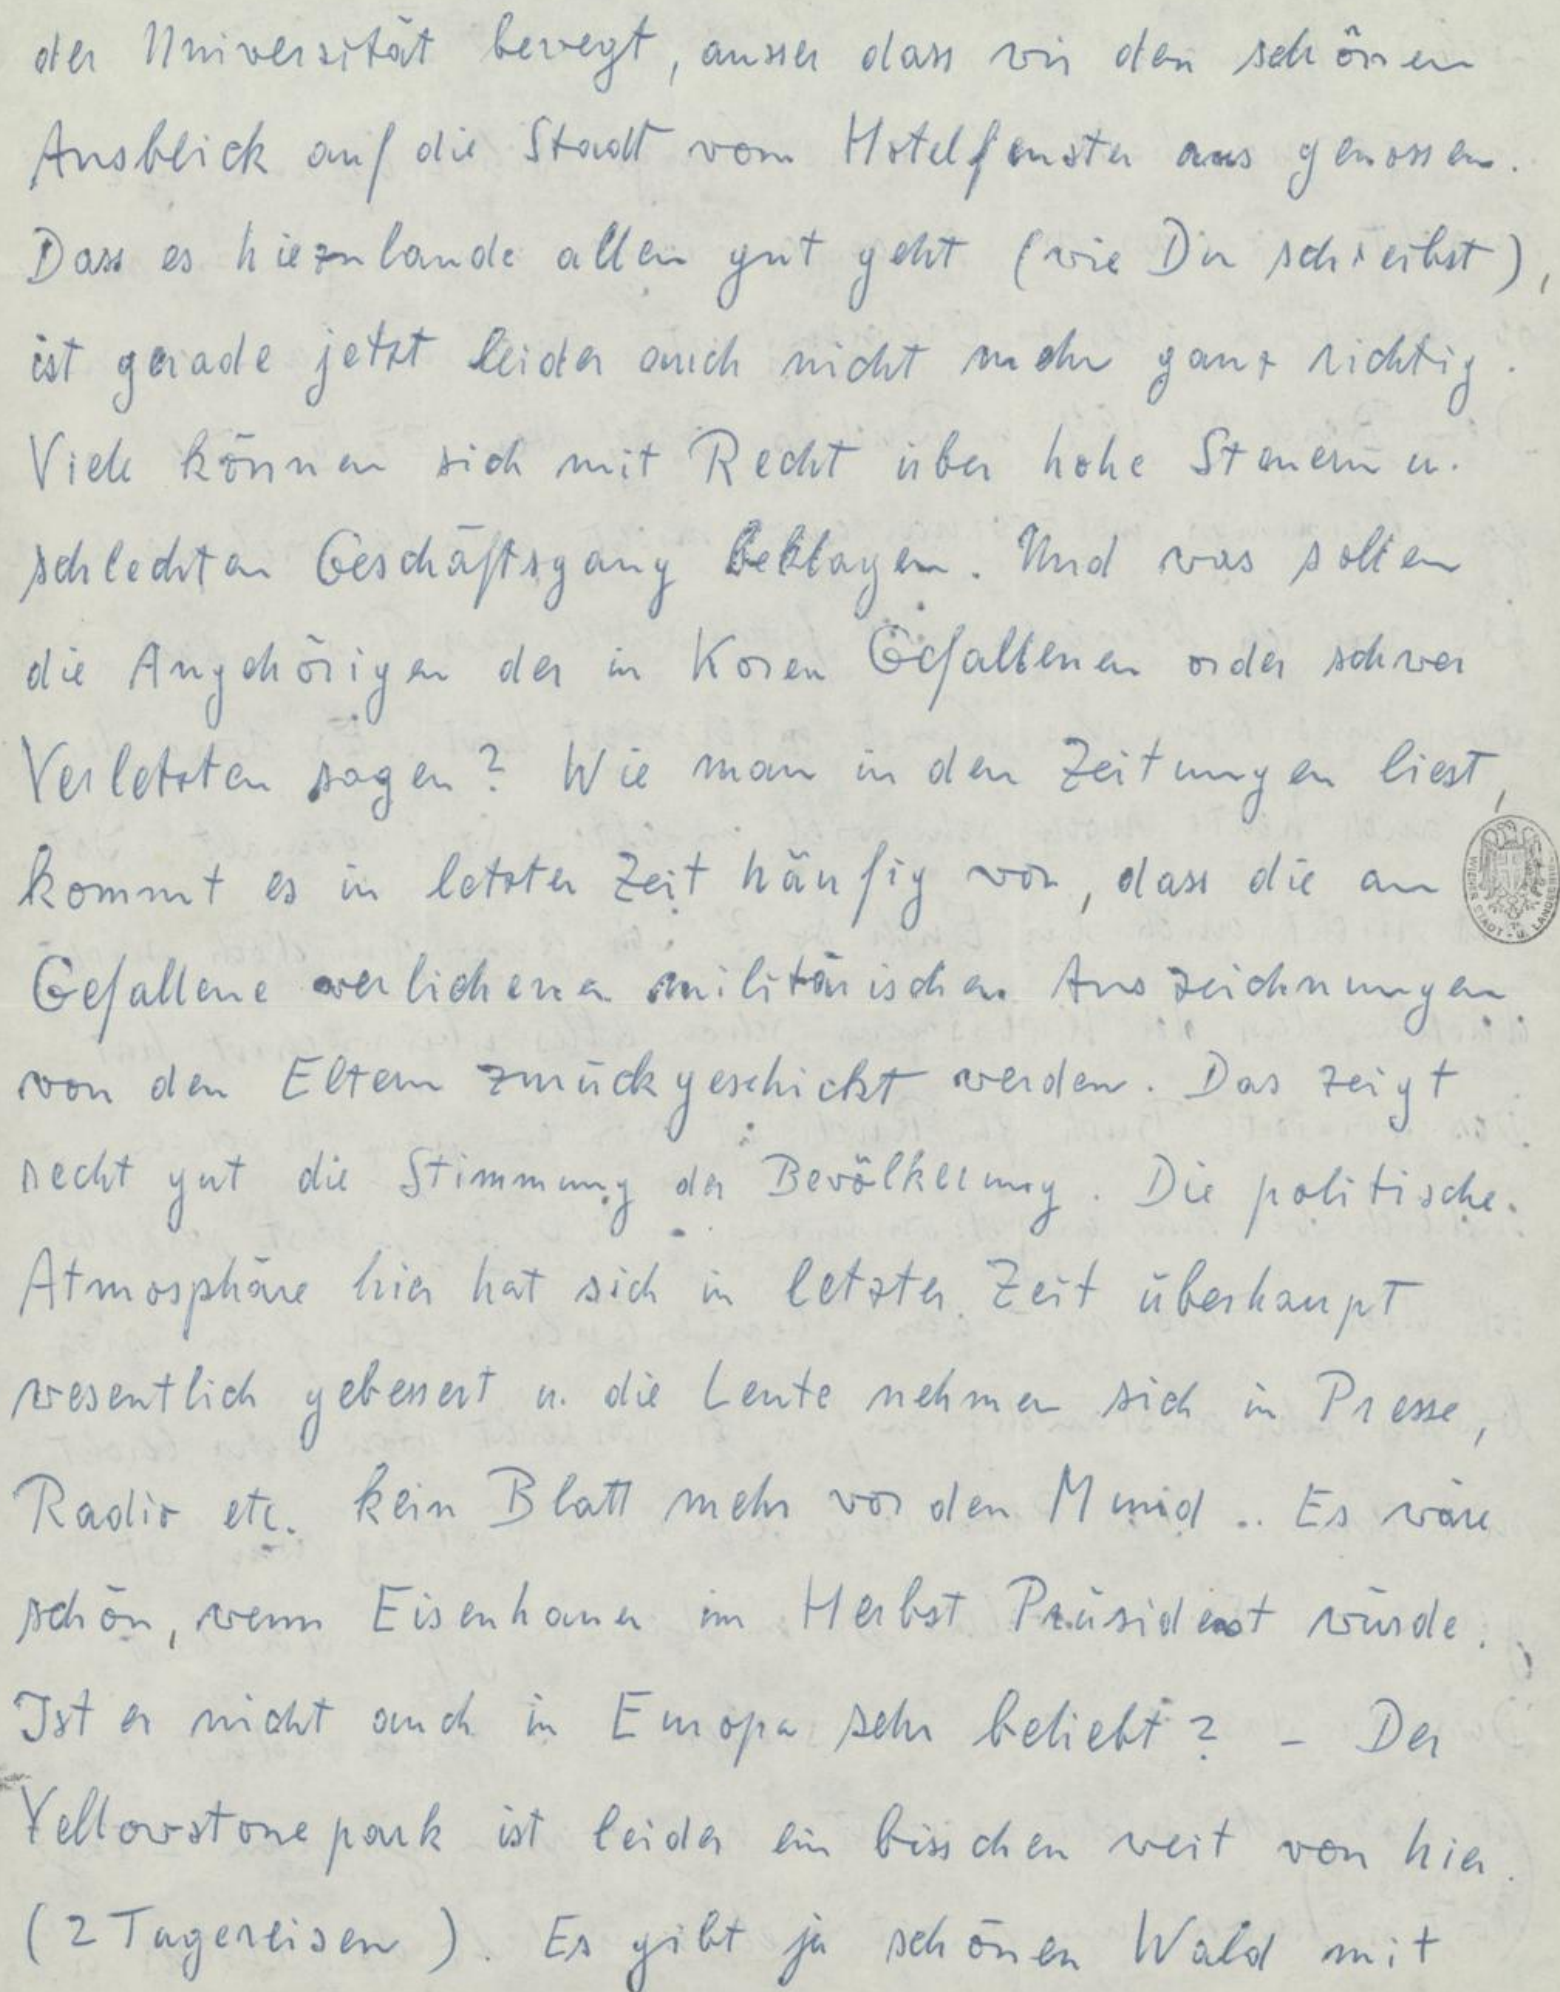 der Universität bewegt, ausser dass wir den schönen
Ausblick auf die Stadt vom Hotelfenster aus genossen.
Dass es hierzulande allen gut geht (wie Du schreibst),
ist gerade jetzt leider auch nicht mehr ganz richtig.
Viele können sich mit Recht über hohe Steuern u.
schlechten Geschäftsgang beklagen. Und was sollen
die Angehörigen der in Korea Gefallenen oder schwer
Verletzten sagen? Wie man in den Zeitungen liest,
kommt es in letzter Zeit häufig vor, dass die an
Gefallene verliehenen militärischen Auszeichnungen
von den Eltern zurückgeschickt werden. Das zeigt
recht gut die Stimmung der Bevölkerung. Die politische
Atmosphäre hier hat sich in letzter Zeit überhaupt
wesentlich gebessert u. die Leute nehmen sich in Presse,
Radio etc. kein Blatt mehr vor den Mund.. Es wäre
schön, wenn Eisenhauer im Herbst Präsident würde.
Ist er nicht auch in Europa sehr beliebt? – Der
Yellowstonepark ist leider ein bisschen weit von hier
(2 Tagereisen). Es gibt ja schönen Wald mit
WIENER STADT- U. LANDESBIB